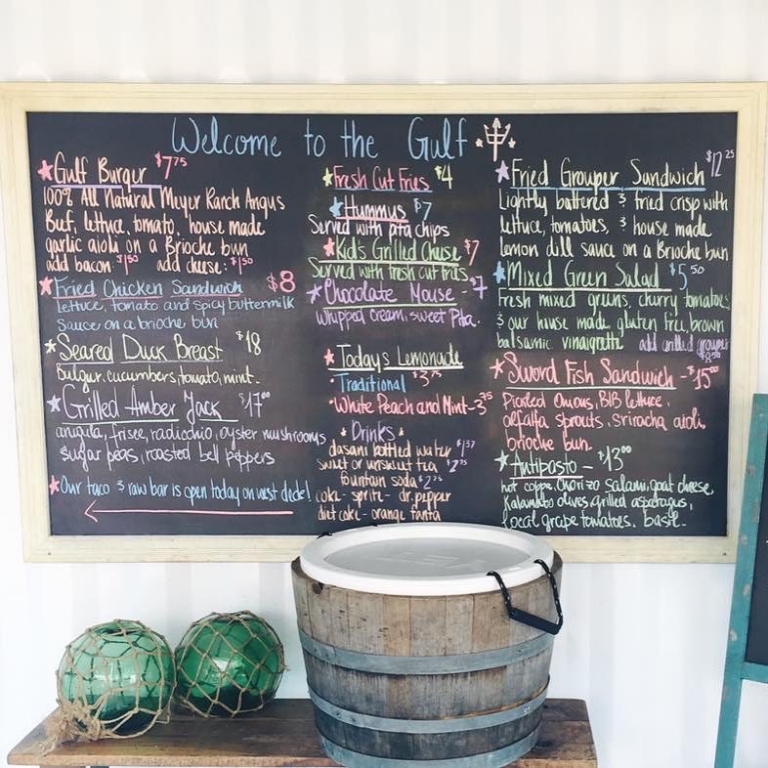 Welcome to the Gulf
Gulf Burger $7.75
100% All Natural Meyer Ranch Angus
Beef, lettuce, tomato, house made
garlic aioli on a Brioche bun
add bacon $1.50 add cheese: $1.50
Fried Chicken Sandwich $8
lettuce, tomato and spicy buttermilk
sauce on a brioche bun
Seared Duck Breast $18
Bulgur, cucumbers, tomato, mint.
Grilled Amber Jack $17.00
arugula, frisee, radicchio, oyster mushrooms
sugar peas, roasted bell peppers
Our taco & raw bar is open today on west deck!
Fresh Cut Fries $4
Hummus $7
Served with pita chips
Kid's Grilled Cheese $7
Served with fresh cut fries
Chocolate Mouse - $7
Whipped cream, sweet Pita.
Today's Lemonade
Traditional $3.75
White Peach and Mint - 3.75
Drinks
dasani bottled water $1.37
sweet or unsweet tea $2.75
fountain soda $2.75
coke - sprite - dr. pepper
diet coke - orange fanta
Fried Grouper Sandwich $12.25
Lightly battered & fried crisp with
lettuce, tomatoes, & house made
lemon dill sauce on a Brioche bun
Mixed Green Salad $5.50
Fresh mixed greens, cherry tomatoes
& our house made, gluten free, brown
balsamic vinaigrette add grilled grouper
$8.50
Sword Fish Sandwich - $15.00
Pickled Onions, BIB lettuce,
alfalfa sprouts, sriracha aioli,
brioche bun.
Antipasto - $13.00
hot coppa, chorizo salami, goat cheese,
Kalamata olives, grilled asparagus,
local grape tomatoes, basil.